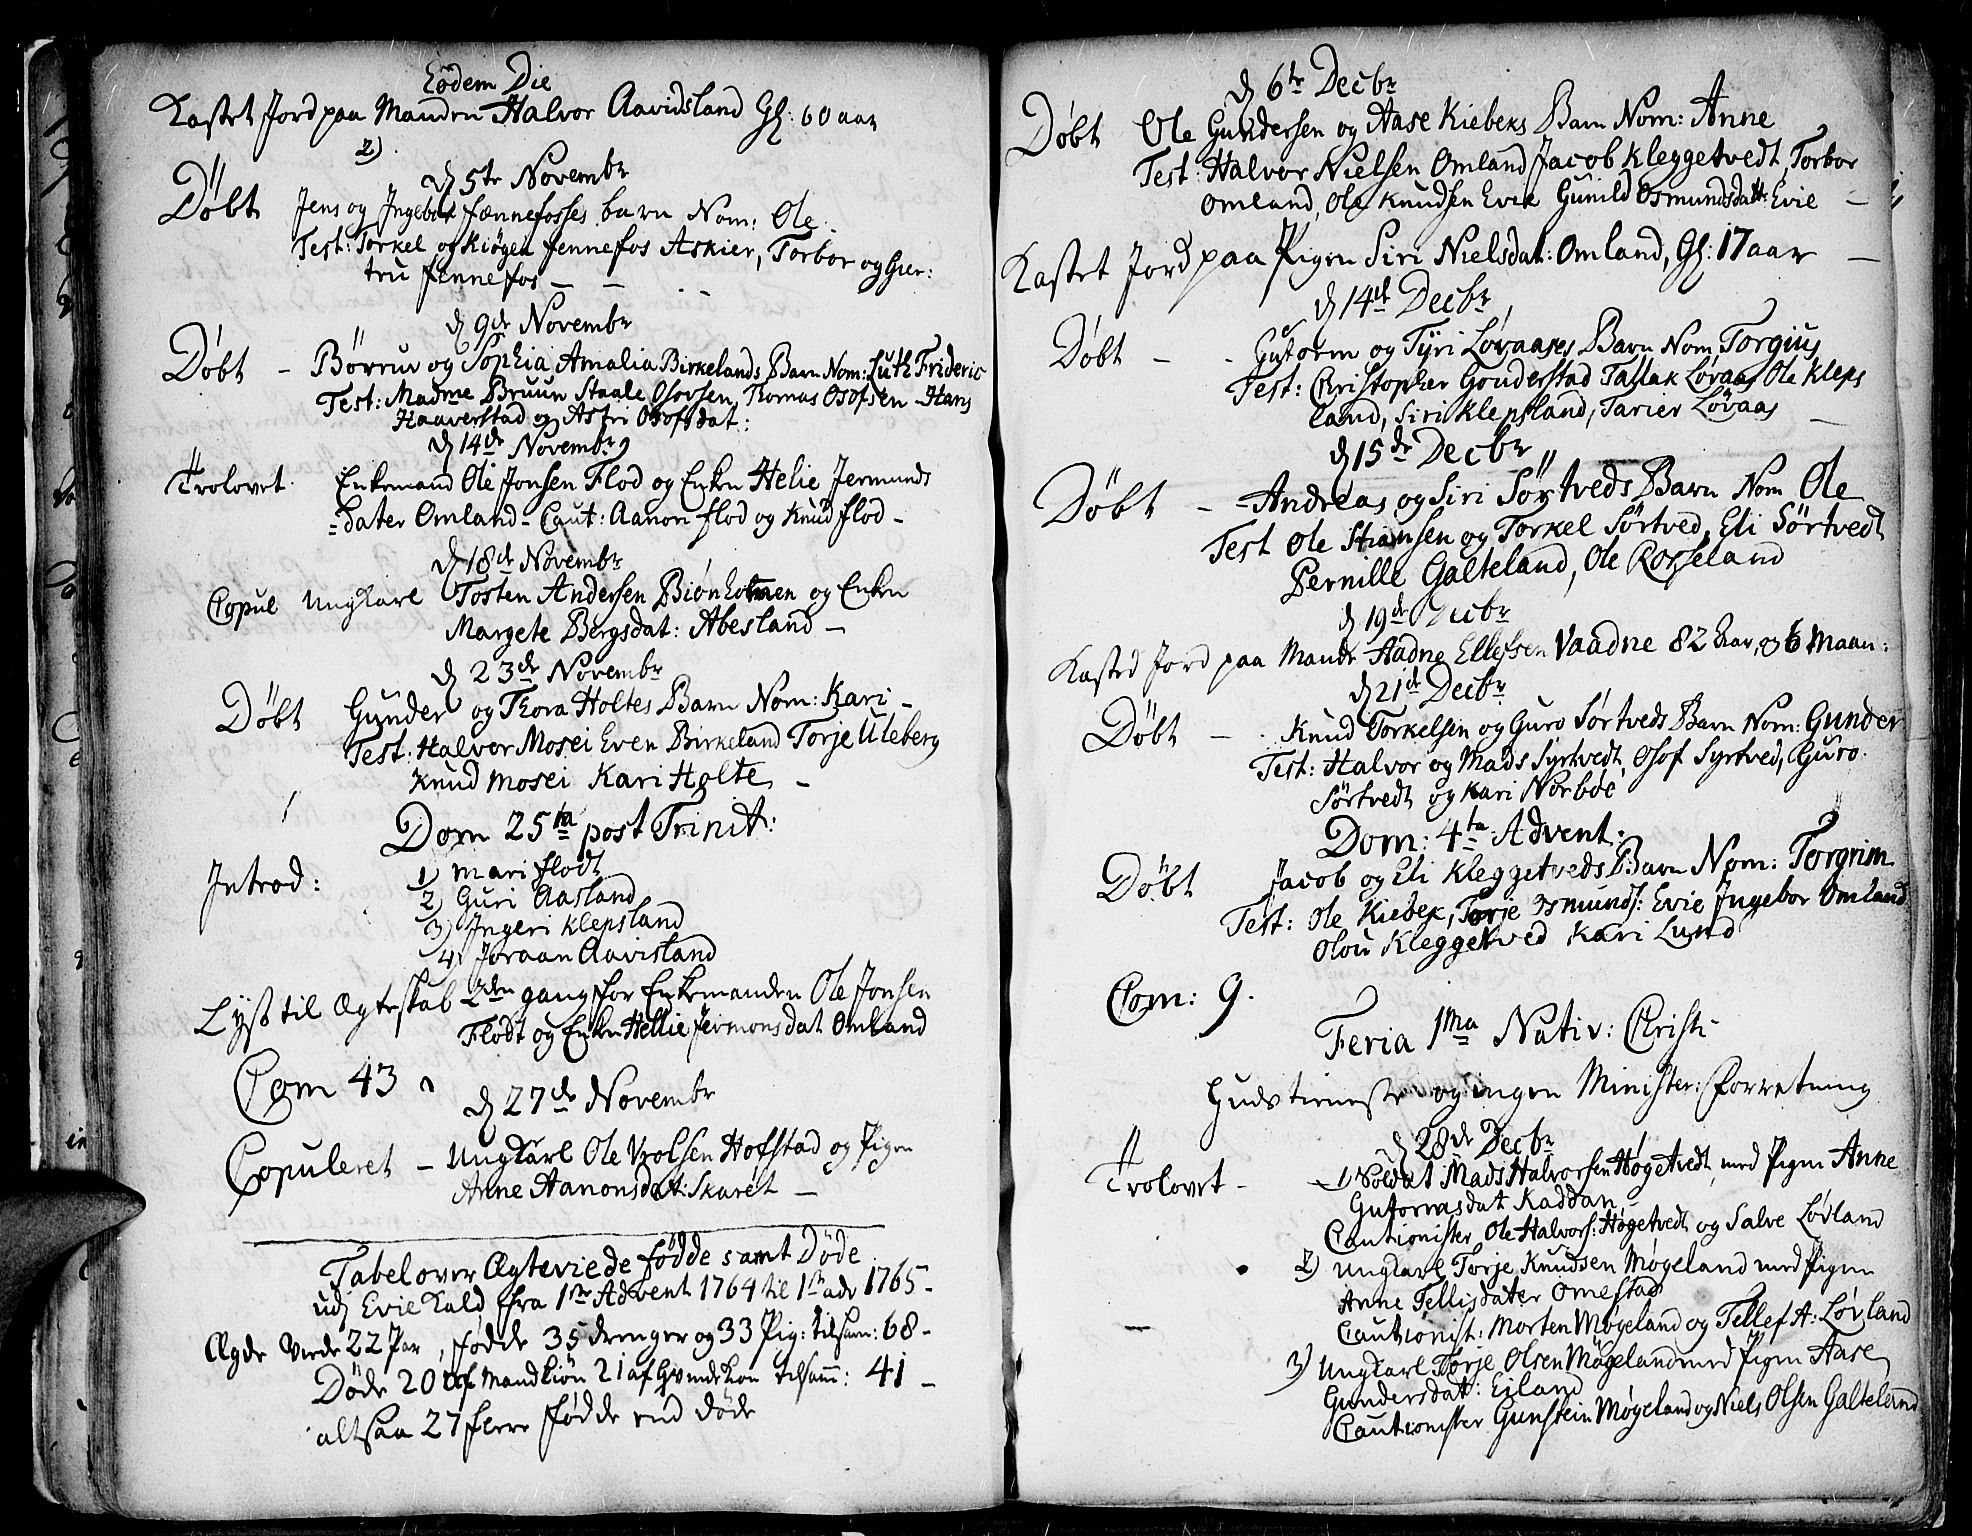 Eodem Die
Kastet Jord paa Manden Halvor Aavidsland Gl: 60 aar
2)
d 5te Novembr
Döbt Jens og Ingebor Fennefosses barn Nom: Ole
Test: Torkel og Kiögen Fennefos Askier, Torbor og Gier:
tru Fennefos –
d 9de Novembr
Döbt – Börrur og Sophia Amalia Birkelands Barn Nom: Luth Frideric
Test: Madme Bruun Staale Osofsen, Thomas Osofsen – Hans
Haaverstad og Astri Osofsdat:
d 14de Novembr
Trolovet Enkemand Ole Jonsen Flod og Enken Helie Jermunds
=dater Omland – Caut: Aanon Flod og Knud Flod –
d 18de Novembr
Copul Ungkarl Tosten Andersen Biönholmen og Enken
Margete Bergsdat: Abesland –
d 23de Novembr
Döbt Gunder og Thora Holtes Barn Nom: Kari –
Test: Halvor Mosei Even Birkeland Torje Uleberg
Knud Mosei Kari Holte –
Dom 25ta post Trinit:
Introd: 1) Mari Flodt
2) Guri Aasland
3) Ingeri Klepsland
4) Joraan Aavisland
Lyst til Ægteskab 2den gang for Enkemanden Ole Jonsen
Flodt og Enken Hellie Jermonsdat Omland
Com 43
d 27de Novembr
Copuleret – Ungkarl Ole Olsen Hofstad og Pigen
Anne Aanonsdat: Skaret –
Tabel over Ægteviede Födde samt Döde
udj Evie Kald fra 1ste Advent 1764 til 1ste adv 1765 –
Ægte Viede 22 Par, Födde 35 drenger og 33 Pig: tilsam: 68 –
Döde 20 af Mandkiön 21 af Qvindekiön tilsam: 41 –
altsaa 27 flere Födde end döde
d 6te Decbr
Döbt Ole Gundersen og Aase Kiebeks Barn Nom: Anne
Test: Halvor Nielsen Omland Jacob Kleggetvedt, Torbor
Omland, Ole Knudsen Evie Gunild Osmundsdatt: Evie –
Kastet Jord paa Pigen Siri Nielsdat: Omland, Gl: 17 aar –
d 14de Decbr
Döbt – Gutorm og Tyri Lövaases Barn Nom Torgius
Test: Christopher Gouderstad Tallak Lövaas Ole Kleps
land, Siri Klepsland, Tarier Lövaas –
d 15de Decbr
Döbt – Andreas og Siri Sörtveds Barn Nom Ole
Test Ole Stiansen og Torkel Sörtved, Eli Sörtvedt
Pernille Galteland, Ole Rosseland
d 19de Decbr
Kasted Jord paa Mande Aadne Ellefsen Vaadne 82 Aar, og 6 Maan:
d 21de Decbr
Döbt – Knud Torkelsen og Guro Sörtveds Barn Nom: Gunder
Test: Halvor og Mads Syrtvedt, Osof Syrtved, Guro
Sörtvedt og Kari Norböe
Dom: 4ta Advent:
Döbt Jacob og Eli Kleggetveds Barn Nom: Torgrim
Test: Ole Kiebek, Torje Osmunds: Evie Ingebor Omland
Olou Kleggetved Kari Lund
Com: 9.
Feria 1ma Nativ: Christi
Gudstieneste og ingen Minister: Forretning
d 28de Decbr
Trolovet – 1) Soldat Mads Halvorsen Högetvedt, med Pigen Anne
Gutormsdat Kaddan
Cautionister, Ole Halvors: Högetvedt og Salve Lövland
2) Ungkarl Torje Knudsen Mögeland med Pigen
Anne Tellisdater Omestad
Cautionist: Morten Mögeland og Tellef A: Lövland
3) Ungkarl Torje Olsen Mögeland med Pigen Aase
Gundersdat: Eiland
Cautionister Gunstein Mögeland og Niels Olsen Galteland